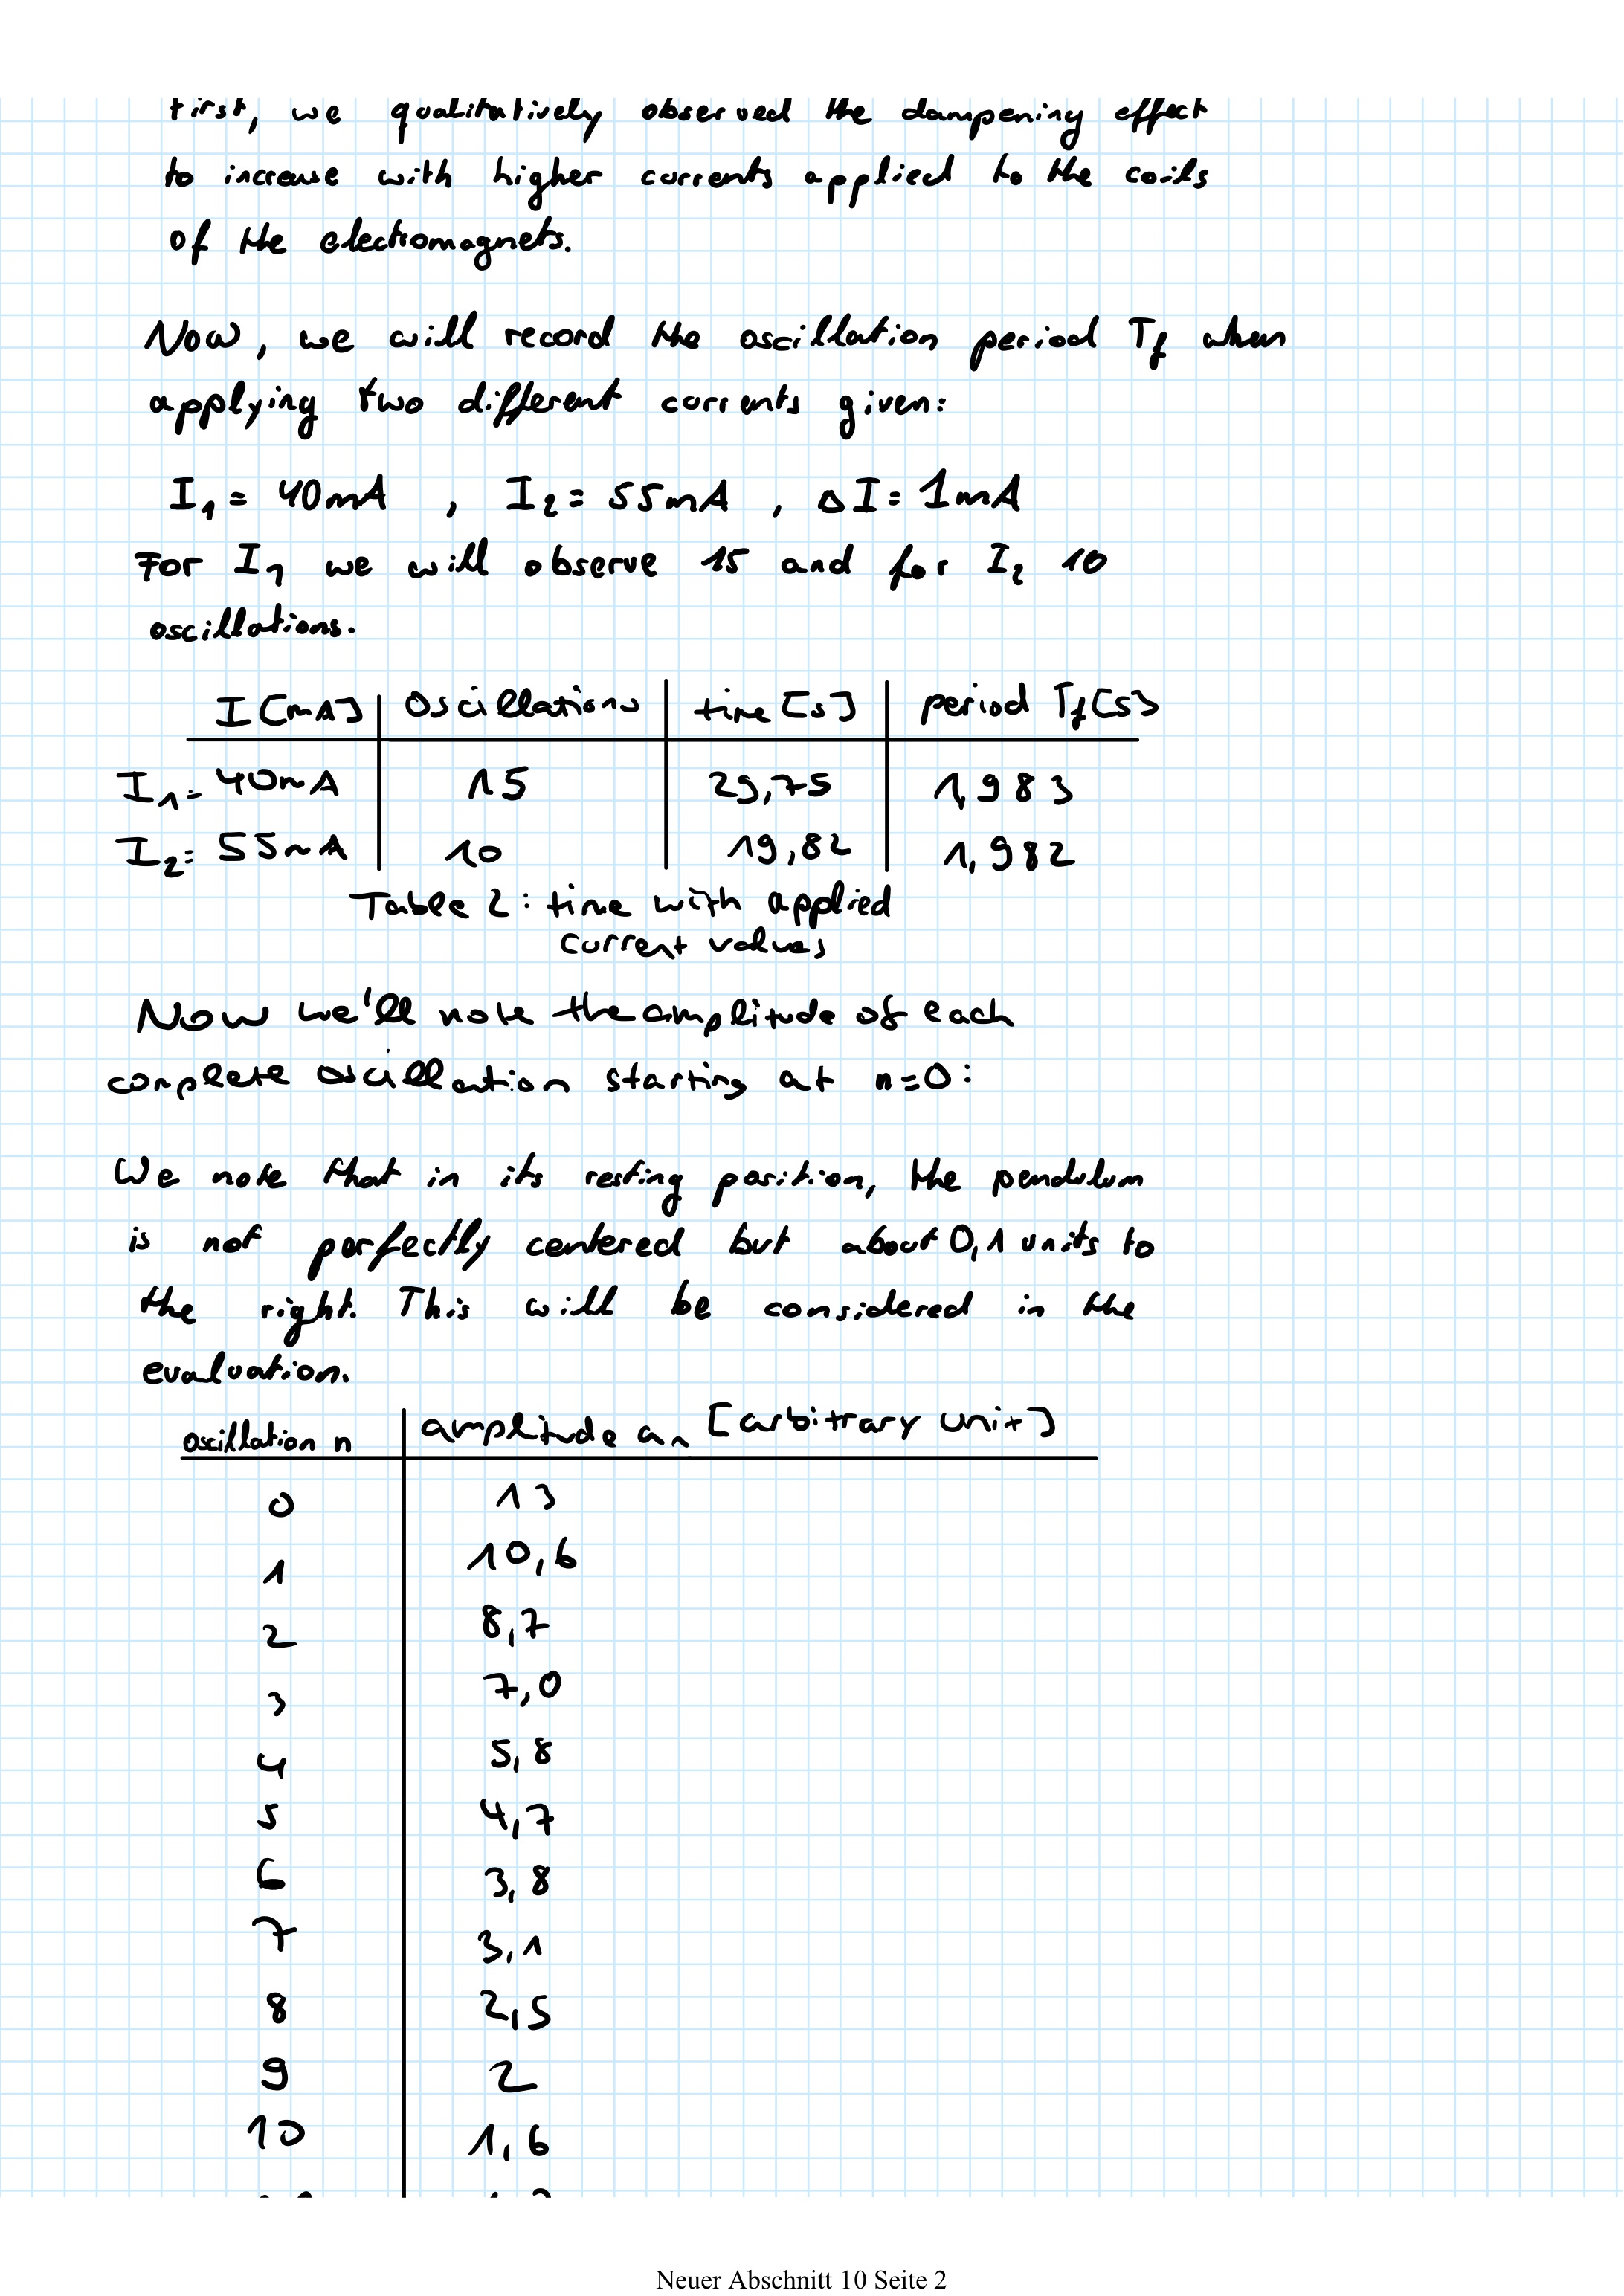 First, we qualitatively observed the dampening effect
to increase with higher currents applied to the coils
of the electromagnets.
Now, we will record the oscillation period Tf when
applying two different currents given:
I1 = 40mA , I2 = 55mA , ΔI = 1mA
For I1 we will observe 15 and for I2 10
oscillations.
I [mA] Oscillations time [s] period Tf [s]
I1= 40mA 15 29,75 1,983
I2= 55mA 10 19,82 1,982
Table 2: time with applied
current values
Now we'll note the amplitude of each
complete oscillation starting at n=0:
We note that in its resting position, the pendulum
is not perfectly centered but about 0,1 units to
the right. This will be considered in the
evaluation.
oscillation n amplitude an [arbitrary unit]
0 13
1 10,6
2 8,7
3 7,0
4 5,8
5 4,7
6 3,8
7 3,1
8 2,5
9 2
10 1,6
Neuer Abschnitt 10 Seite 2